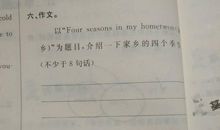 cold
六、作文。
以“Four seasons in my hometown(
e to
乡)”为题目,介绍一下家乡的四个季
you
(不少于8句话)